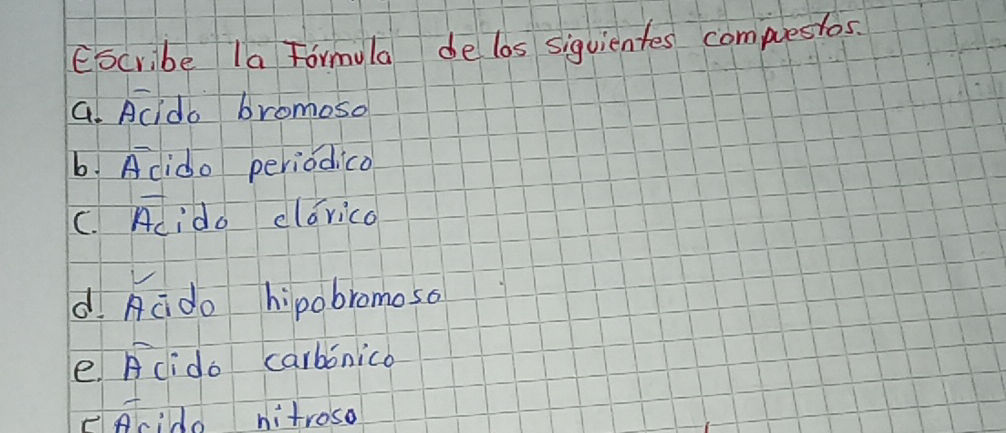 Escribe la Fórmula de los siguientes compuestos.
a. Ácido bromoso
b. Ácido periódico
c. Ácido clórico
d. Ácido hipobromoso
e. Ácido carbónico
f Ácido nitroso